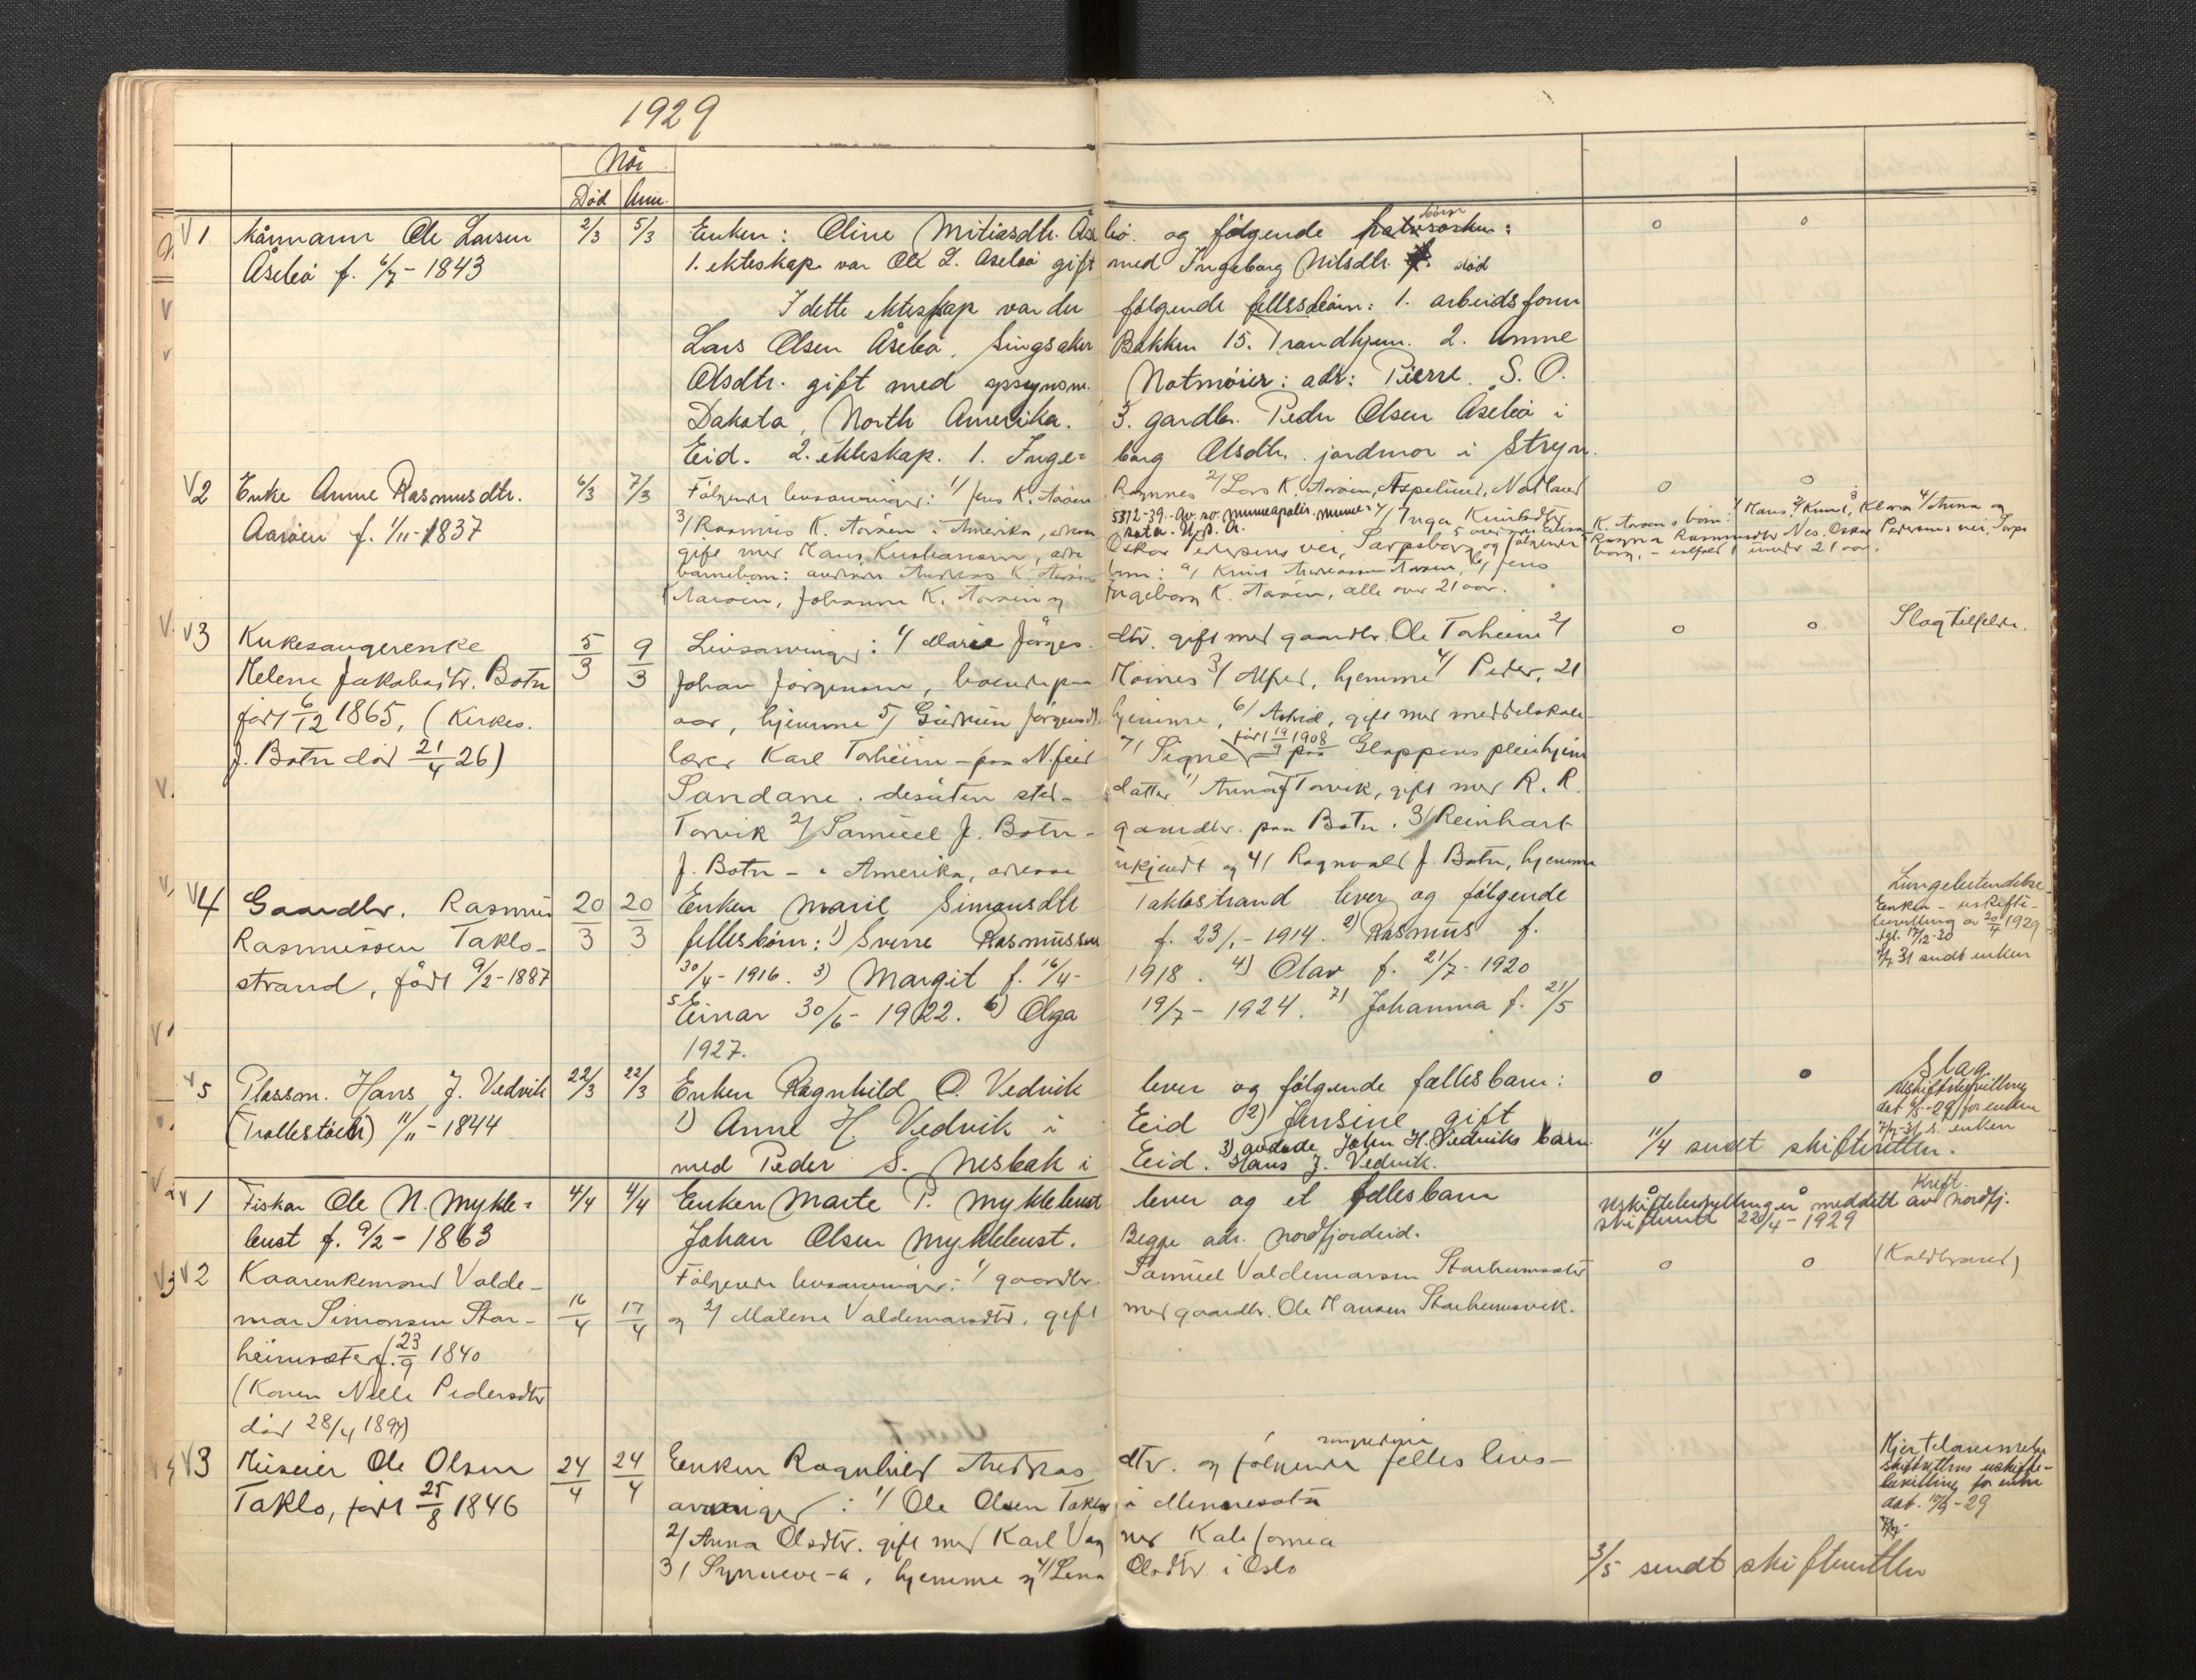 1929
Når
Død Anm.
1 Kårmann Ole Larsen 2/3 5/3 Enken: Oline Mitiasdtr. Åsebø og følgende børn: o o
Åsebø f. 6/7 - 1843 1. ekteskap var Ole L. Åsebø gift med Ingeborg Nilsdtr. død
I dette ekteskap var der følgende fellesbørn: 1. arbeidsform
Lars Olsen Åsebø. Singsaker Bakken 15. Trondhjem. 2. Anne
Olsdtr. gift med opsynsm. Notmøier: adr: Pierre. S. O.
Dakota, North Amerika. 3. gardbr. Peder Olsen Åsebø i
Eid. 2. ekteskap. 1. Ingeborg Olsdtr. jordmor i Stryn.
2 Enke Anne Rasmusdtr. 6/3 7/3 Følgende livsarvinger: 1/ Jens K. Aarøen 2/ Lars K. Aarøen, Aspelund, o o
Aarøen f. 1/11 - 1837 3/ Rasmus K. Aarøen i Amerika, 5312-39. Av. so. Minneapolis. Minnesota. U.S.A. 4/ Inga Knutsdtr. K. Aarøens børn: 1/ Hans, 2/ Knut, 3/ Klara 4/ Anna og
gift med Hans Kristiansen, Oskar Pedersens vei, Sarpsborg og følgende Ragna Rasmusdtr Nes. Oskar Pedersens vei, Sarpsborg, under 21 aar.
barnebørn: Andreas K. Aarøens børn: a/ Knut Andreassen Aarøen, b/ Jens
K. Aarøen, Johanna K. Aarøen og Ingeborg K. Aarøen, alle over 21 aar.
3 Kirkesangerenke 5/3 9/3 Livsarvinger: 1/ Marie Jørgensdtr. gift med gaardbr. Ole Torheim 2/ o o Slagtilfelde.
Helene Jakobsdtr. Botn Johan Jørgensen, boende paa Moines 3/ Alfred, hjemme 4/ Peder, 21
født 6/12 1865, (Kirkes. aar, hjemme 5/ Gudrun Jørgensdtr. hjemme, 6/ Astrid, gift med middelskole-
J. Botn død 21/4 26) lærer Karl Torheim - paa N.feid 7/ Signe født 19/9 1908 - paa Gloppens pleiehjem
Sandane. desuten sted- datter 1/ Anna J Torvik, gift med R. R.
Torvik 2/ Samuel J. Botn - gaardbr. paa Botn. 3/ Reinhart
J. Botn - i Amerika, adresse ukjendt og 4/ Ragnvald J. Botn, hjemme
4 Gaardbr. Rasmus 20/3 20/3 Enken Marie Simonsdtr Taklostrand lever og følgende Lungebetendelse
Rasmussen Taklo- fellesbørn: 1) Sverre Rasmussen f. 23/1 - 1914. 2) Rasmus f. Enken - uskifte-
strand, født 9/2 - 1887 30/4 - 1916. 3) Margit f. 16/4 - 1918. 4) Olav f. 21/7 - 1920 bevilling av 20/4 1929
5 Einar 30/6 - 1922. 6) Olga 19/7 - 1924. 7/ Johanna f. 21/5 sendt enken
1927.
5 Plassm. Hans J. Vedvik 22/3 22/3 Enken Ragnhild O. Vedvik lever og følgende fællesbarn: o o Slag
(Trollestøen) 11/11 - 1844 1) Anne H. Vedvik i Eid 2) Jensine gift Uskiftebevilling
med Peder S. Nesbak i Eid. 3) avdøde John H. Vedviks barn Hans J. Vedvik. 11/4 sendt skifteretten. dat 6/5-29 for enken
1 Fisker Ole N. Mykle- 4/4 4/4 Enken Marte P. Myklebust lever og et fellesbarn Uskiftebevillingen meddelt av Nordfj. Kreft.
bust f. 9/2 - 1863 Johan Olsen Myklebust. Begge adr. Nordfjordeid. skifterett 22/4 - 1929
2 Kaarenkemand Valde- Følgende livsarvinger: 1/ gaardbr. Samuel Valdemarsen Starheimsæter o o (Koldbrand)
mar Simonsen Star- 16/4 17/4 og 2/ Malene Valdemarsdtr, gift med gaardbr. Ole Hansen Starheimsvik.
heimsæter f. 23/9 1840
(Konen Nille Pedersdtr
død 28/4 1897)
3 Huseier Ole Olsen 24/4 24/4 Enken Ragnhild Andreasdtr. og følgende myndige felles livs- Hjertelammelse
Taklo, født 25/8 1846 arvinger: 1/ Ole Olsen Taklo i Mennesota Skifterettens uskifte-
2/ Anna Olsdtr. gift med Karl Vagner Kalifornia bevilling for enken
3/ Synneve-a, hjemme og 4/ Lena Olsdtr. i Oslo dat. 10/9 - 29
3/5 sendt skifteretten